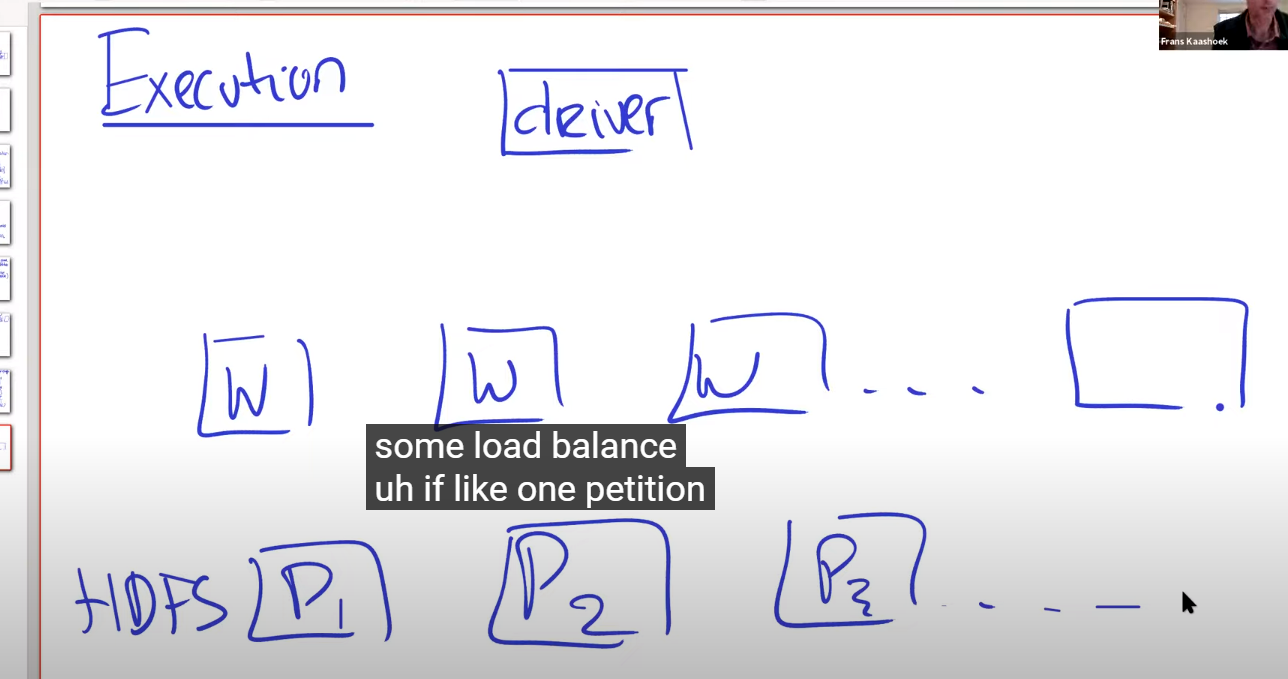 Frans Kaashoek
Execution
driver
W W W
some load balance
uh if like one petition
HDFS P1 P2 P3